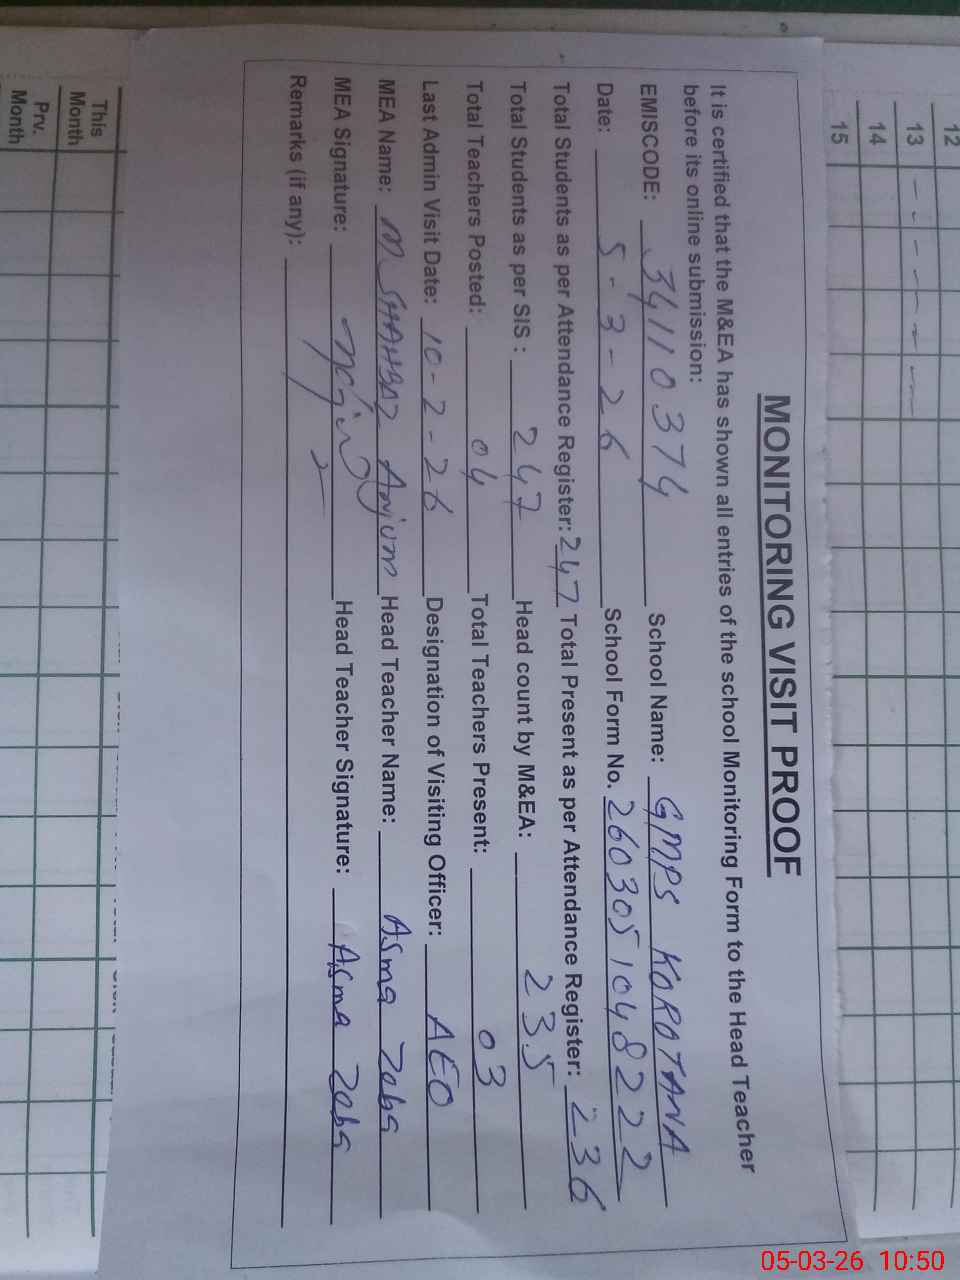 MONITORING VISIT PROOF
It is certified that the M&EA has shown all entries of the school Monitoring Form to the Head Teacher
before its online submission:
EMISCODE: 34110374 School Name: GMPS KOROTANA
Date: 5-3-26 School Form No. 2603051048222
Total Students as per Attendance Register: 247 Total Present as per Attendance Register: 236
Total Students as per SIS : 247 Head count by M&EA: 235
Total Teachers Posted: 04 Total Teachers Present: 03
Last Admin Visit Date: 10-2-26 Designation of Visiting Officer: AEO
MEA Name: M SHAHBAZ Anjum Head Teacher Name: Asma Zeba
MEA Signature: Head Teacher Signature: Asma Zeba
Remarks (if any):
12
13
14
15
This
Month
Prv.
Month
05-03-26 10:50